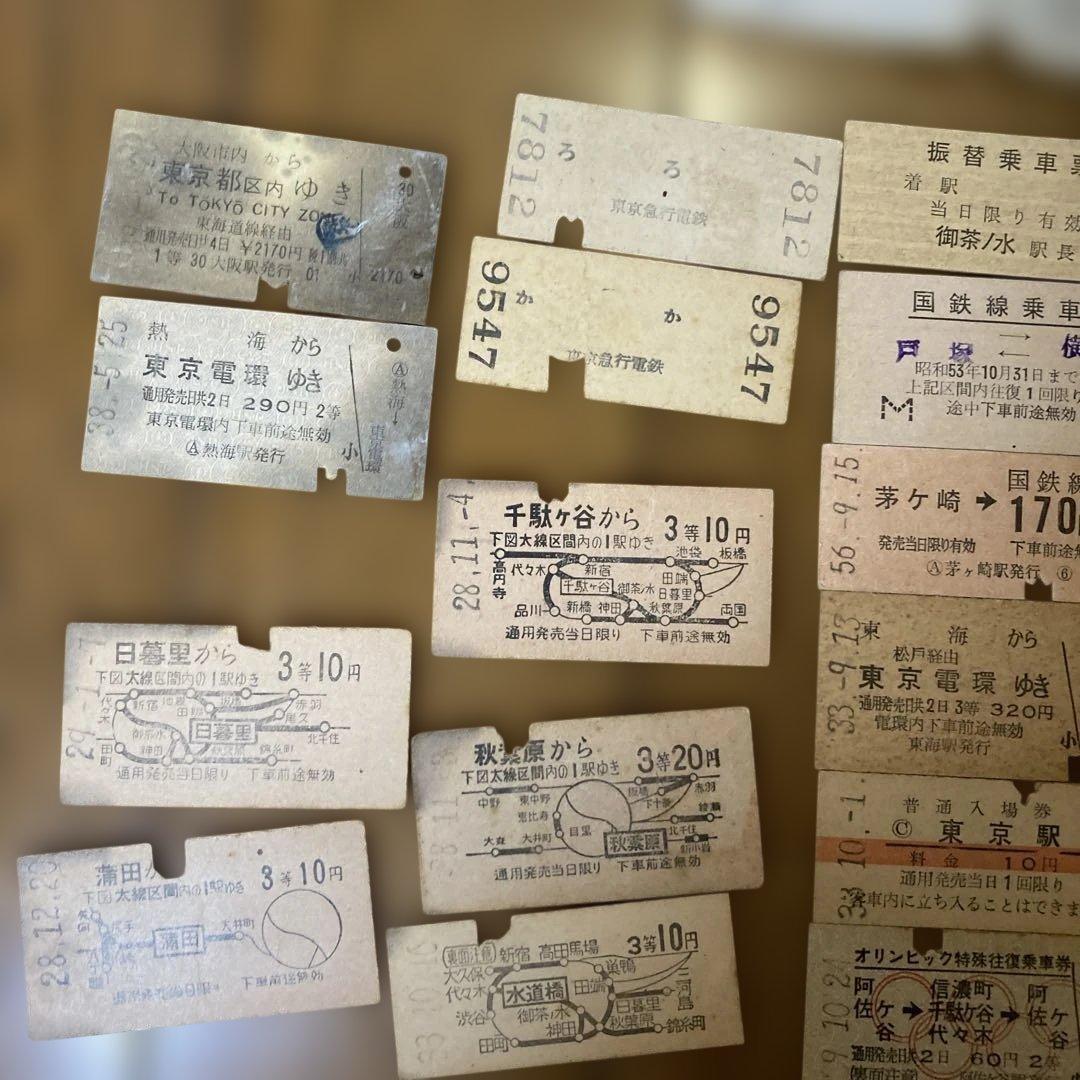 大阪市内から
東京都区内ゆき
To TŌKYŌ CITY ZONE
東海道線経由
通用発売日共4日 ¥2170円
1等 30大阪駅発行 01
小 2170
38.-5.25
熱海から
東京電環ゆき
通用発売日共2日 290円 2等
東京電環内下車前途無効
Ⓐ熱海駅発行
小
Ⓐ熱海→東京電環
7812
ろ ろ
東京急行電鉄
7812
9547
か か
東京急行電鉄
9547
28.11.-4
千駄ヶ谷から 3等10円
下図太線区間内の1駅ゆき
池袋 板橋
高円寺 代々木 新宿
千駄ヶ谷 御茶ノ水 田端
日暮里
品川 新橋 神田 秋葉原 両国
通用発売当日限り 下車前途無効
29.-1.-7
日暮里から 3等10円
下図太線区間内の1駅ゆき
代々木 新宿 池袋 板橋 赤羽
田端 尾久
御茶ノ水 日暮里 北千住
田町 神田 秋葉原 錦糸町
通用発売当日限り 下車前途無効
秋葉原から 3等20円
下図太線区間内の1駅ゆき
中野 東中野 板橋 赤羽
下十条
恵比寿 綾瀬
目黒 北千住
大森 大井町 秋葉原 新小岩
通用発売当日限り 下車前途無効
28.12.29
蒲田から 3等10円
下図太線区間内の1駅ゆき
蒲田 大井町
下車前途無効
裏面注意 新宿 高田馬場 3等10円
大久保 巣鴨
代々木 水道橋 田端 三河島
渋谷 御茶ノ水 日暮里
田町 神田 秋葉原 錦糸町
振替乗車票
着駅
当日限り有効
御茶ノ水 駅長
国鉄線乗車
戸塚 ⇄ 横
昭和53年10月31日まで
上記区間内往復1回限り
M 途中下車前途無効
56.-9.15.
国鉄線
茅ケ崎 → 170
発売当日限り有効 下車前途無効
Ⓐ茅ヶ崎駅発行 ⑥
33.-9.13
東海から
松戸経由
東京電環ゆき
通用発売日共2日3等 320円
電環内下車前途無効
東海駅発行
小
10.-1
普通入場券
Ⓒ 東京駅
料金 10円
通用発売当日1回限り
客車内に立ち入ることはできま
オリンピック特殊往復乗車券
阿佐ケ谷 → 信濃町 千駄ケ谷 代々木 → 阿佐ケ谷
通用発売日共2日 60円 2等
(裏面注意) 阿佐ケ谷駅発行
9.10.21